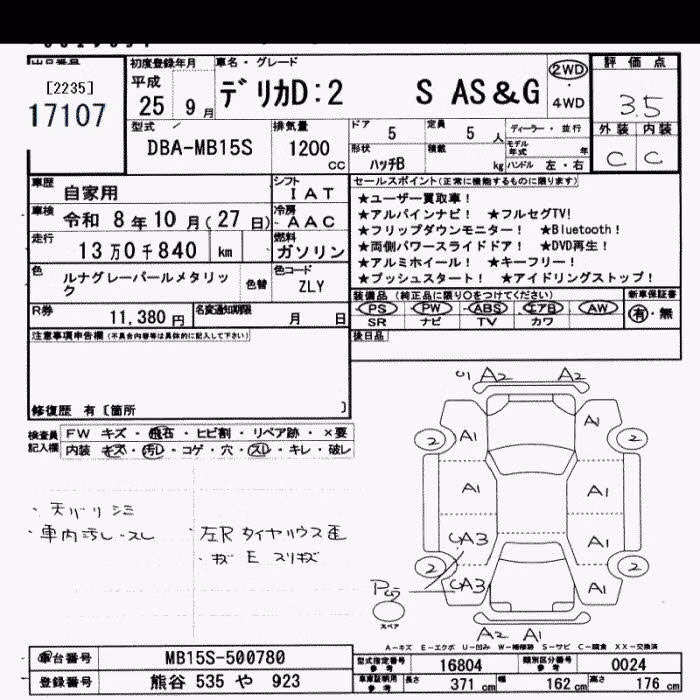 出品番号
[2235]
17107
初度登録年月
平成
25 9月
車名・グレード
デリカD:2 S AS&G
2WD
・
4WD
評価点
3.5
外装 内装
C C
型式
DBA-MB15S
排気量
1200
CC
ドア
5
定員
5 人
ディーラー・並行
形状
ハッチB
積載
kg
モデル年式
年
ハンドル 左・右
車歴
自家用
シフト
IAT
車検
令和 8年10月(27日)
冷房
AAC
走行
13万0千840 km
燃料
ガソリン
色
ルナグレーパールメタリック
色替
色コード
ZLY
R券
11,380円
名変通知期限
月 日
セールスポイント(正常に機能するものに限ります)
★ユーザー買取車!
★アルパインナビ! ★フルセグTV!
★フリップダウンモニター! ★Bluetooth!
★両側パワースライドドア! ★DVD再生!
★アルミホイール! ★キーフリー!
★プッシュスタート! ★アイドリングストップ!
装備品(純正品に限り○をつけてください)
新車保証書
PS PW ABS エアB AW
有・無
SR ナビ TV カワ
後日品
注意事項申告欄(不具合内容等は具体的に記入して下さい)
修復歴 有〔箇所 〕
検査員
記入欄
FW キズ・飛石・ヒビ割・リペア跡・×要
内装 キズ・汚レ・コゲ・穴・スレ・キレ・破レ
・天バリシミ
・車内汚レ・スレ
・左Rタイヤハウス歪
・キズ E スリキズ
U1 A2 A2
2 A1 A1 2
A1 A1
UA3 A1
2 UA3 A1 2
スペア
A2 A1
A－キズ E－エクボ U－凹み W－補修跡 S－サビ C－腐食 XX－交換済
車台番号
MB15S-500780
登録番号
熊谷 535 や 923
型式指定番号
参考
16804
類別区分番号
参考
0024
車庫証明用
参考
長さ 371 cm
幅 162 cm
高さ 176 cm